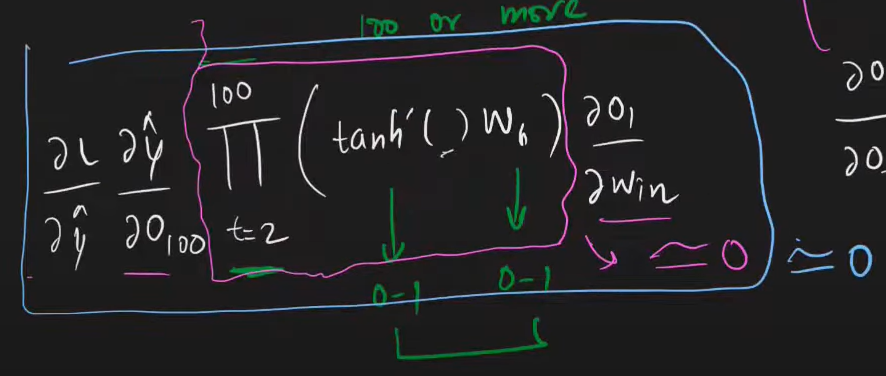 100 or more
∂L/∂ŷ ∂ŷ/∂O₁₀₀ ∏ₜ₌₂¹⁰⁰ (tanh′(_) Wₕ) ∂O₁/∂Win
≃ 0
≃ 0
0-1
0-1
∂O
∂O